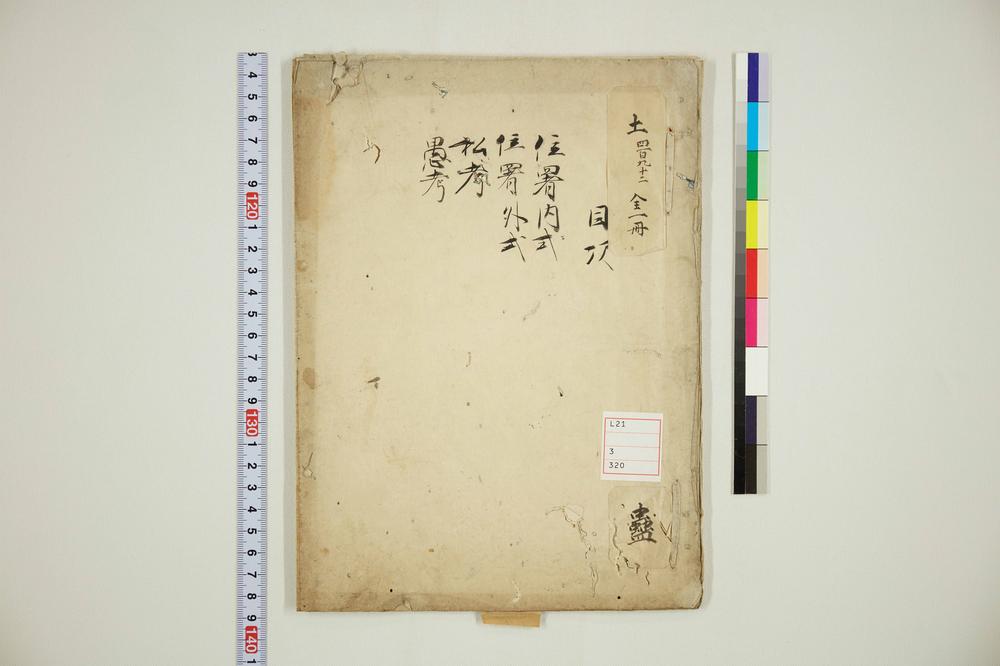 土 四百九十二 全一冊
目次
位署内式
位署外式
私考
愚考
L21
3
320
蠱
3 4 5 6 7 8 9 120 1 2 3 4 5 6 7 8 9 130 1 2 3 4 5 6 7 8 9 140 1